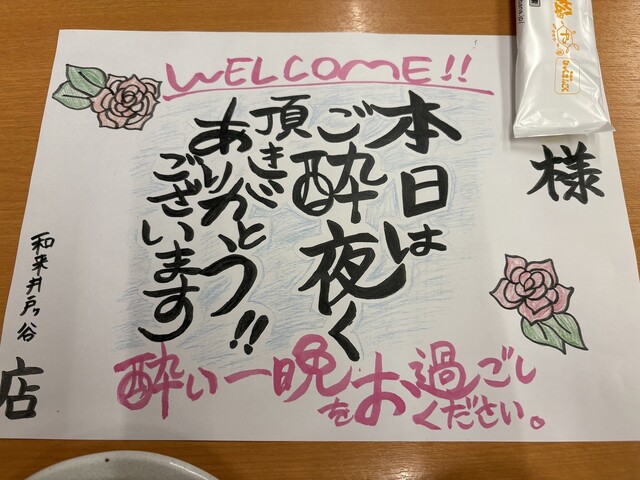 WELCOME!!
様
本日は
ご酔夜く
頂き
ありがとう!!
ございます
酔い一晩をお過ごしください。
和来井戸ヶ谷
店